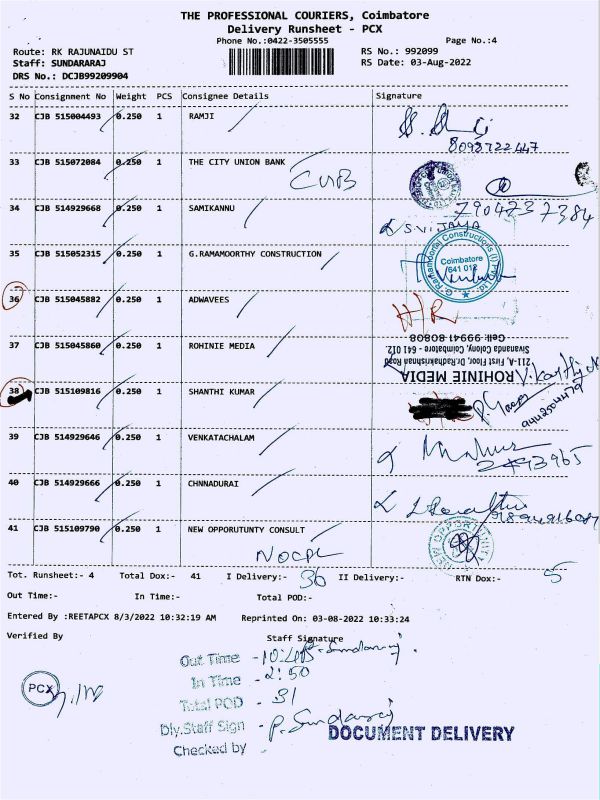 THE PROFESSIONAL COURIERS, Coimbatore
Delivery Runsheet - PCX
Phone No.:0422-3505555
Page No.:4
Route: RK RAJUNAIDU ST
RS No.: 992099
Staff: SUNDARARAJ
RS Date: 03-Aug-2022
DRS No.: DCJB99209904
S No Consignment No Weight PCS Consignee Details Signature
32 CJB 515004493 0.250 1 RAMJI
8098722447
33 CJB 515072084 0.250 1 THE CITY UNION BANK
CUB
7904237384
34 CJB 514929668 0.250 1 SAMIKANNU
S.VIJAYA
35 CJB 515052315 0.250 1 G.RAMAMOORTHY CONSTRUCTION
Coimbatore
641 012
36 CJB 515045882 0.250 1 ADWAVEES
H/R
37 CJB 515045860 0.250 1 ROHINIE MEDIA
ROHINIE MEDIA
211-A, First Floor, Dr.Radhakrishnan Road
Sivananda Colony, Coimbatore - 641 012
Cell: 99941 80808
38 CJB 515109816 0.250 1 SHANTHI KUMAR
39 CJB 514929646 0.250 1 VENKATACHALAM
40 CJB 514929666 0.250 1 CHNNADURAI
41 CJB 515109790 0.250 1 NEW OPPORUTUNTY CONSULT
NOCPL
NEW OPPORTUNITY
Tot. Runsheet:- 4 Total Dox:- 41 I Delivery:- 36 II Delivery:- RTN Dox:- 5
Out Time:- In Time:- Total POD:-
Entered By :REETAPCX 8/3/2022 10:32:19 AM Reprinted On: 03-08-2022 10:33:24
Verified By Staff Signature
P. Sundaraj
Out Time -
In Time - 2:50
Total POD - 31
Dly.Staff Sign - P. Sundaraj
Checked by -
PCX
DOCUMENT DELIVERY